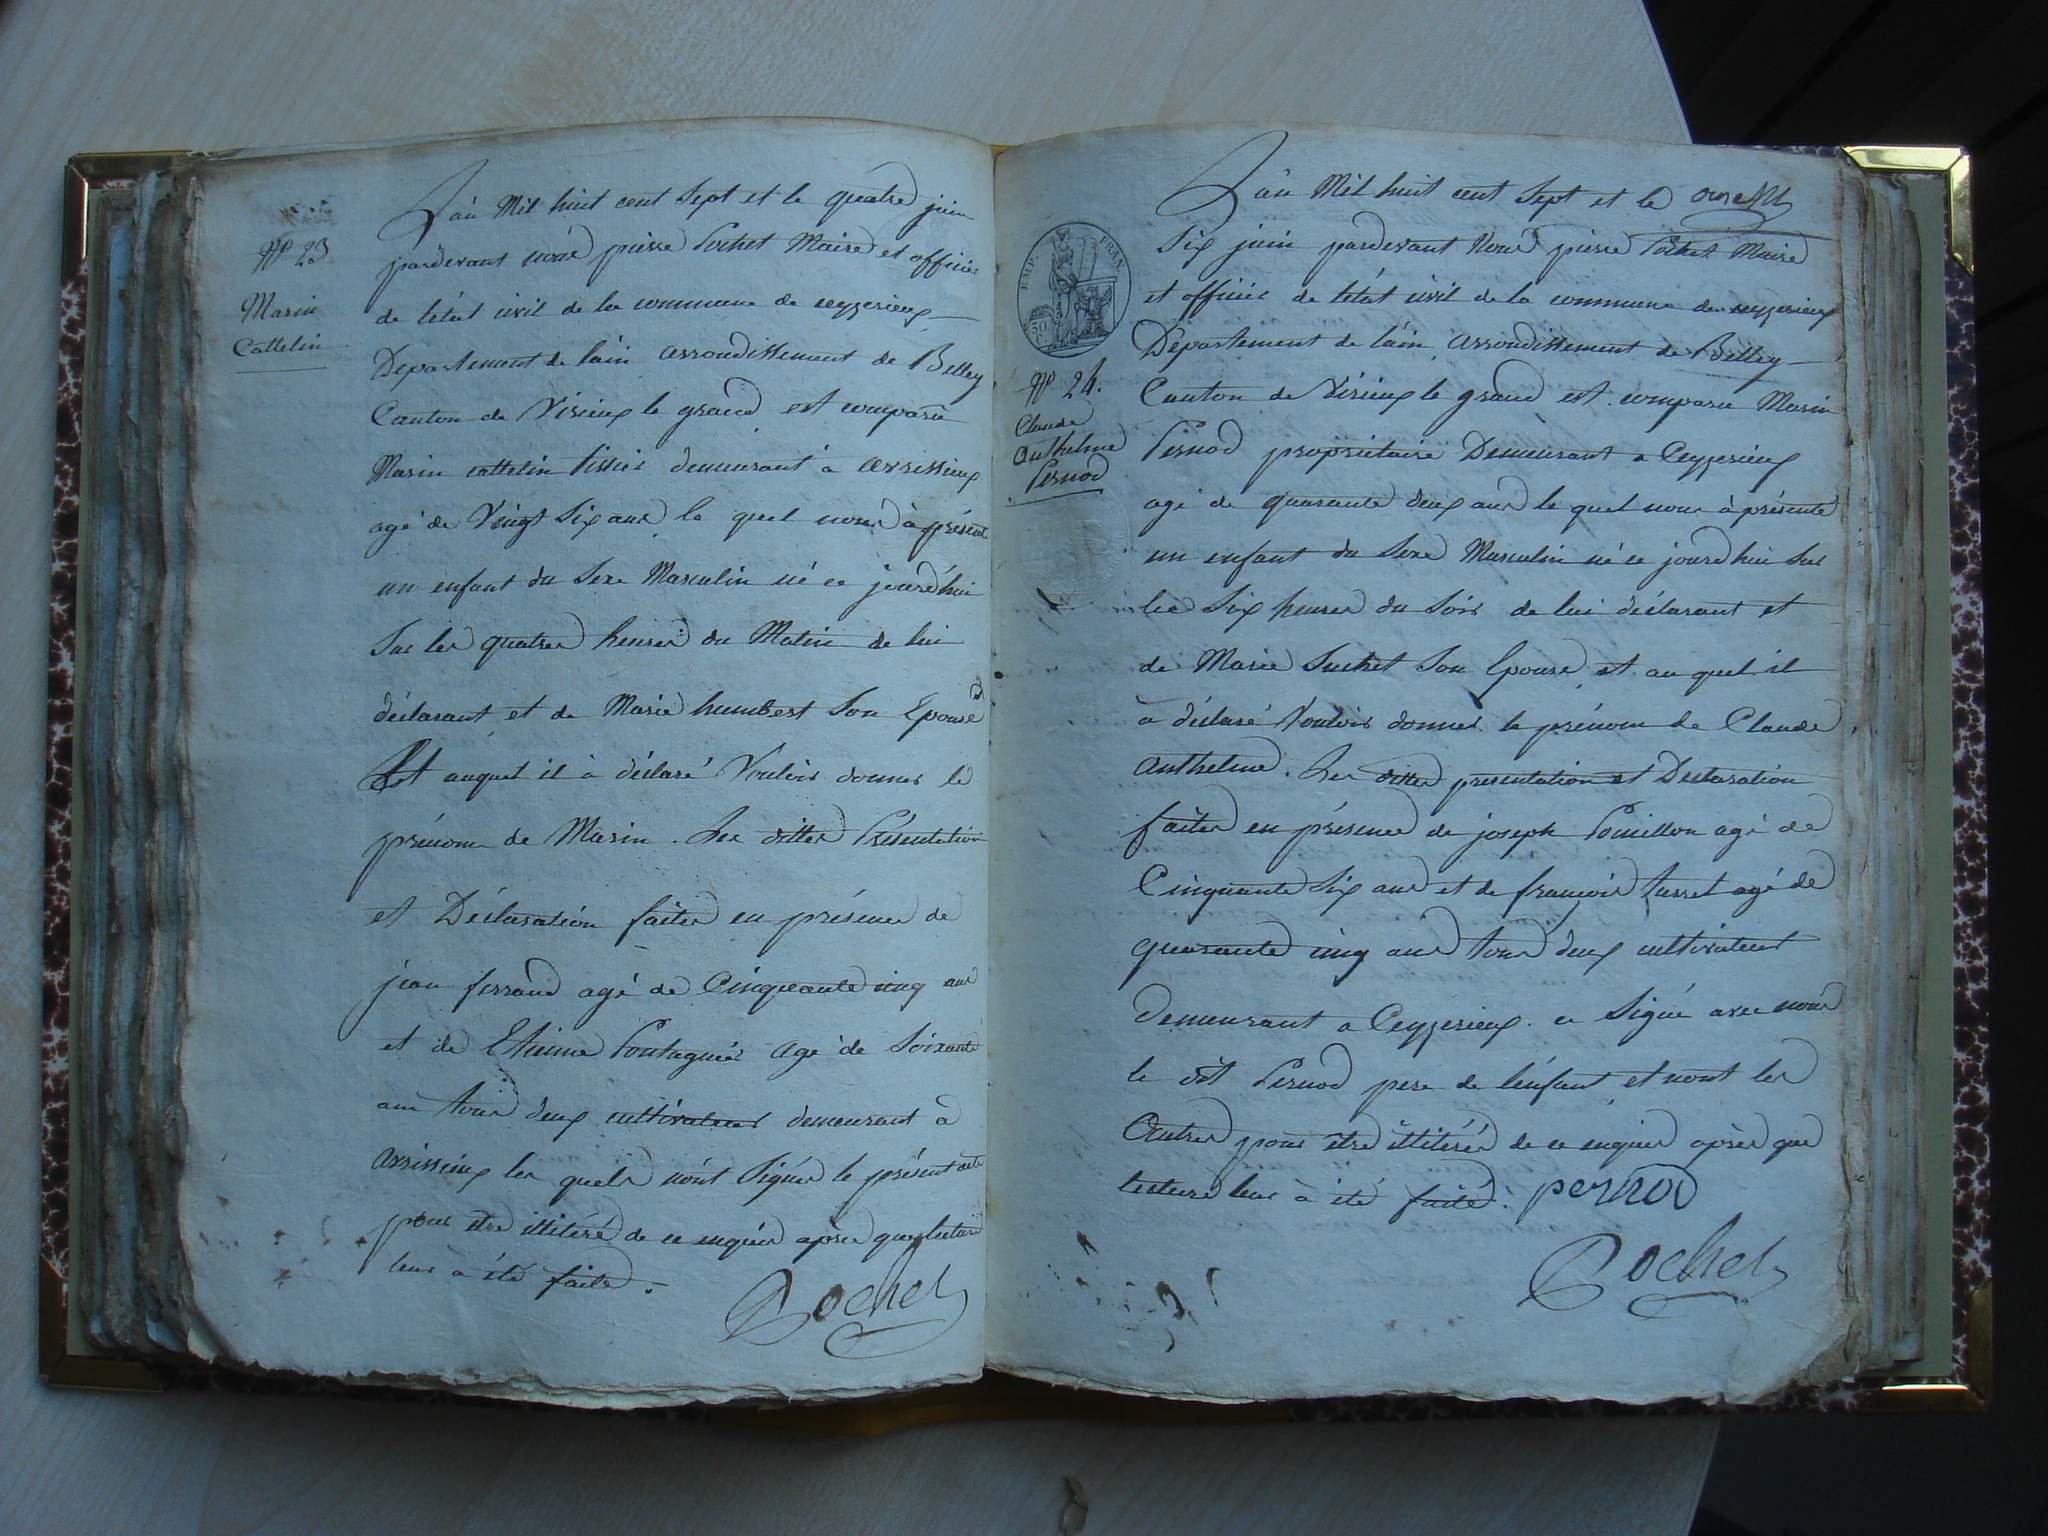 N° 23
Marin
Cattelin
L'an Mil huit cent Sept et le quatre juin
pardevant nous pierre Pochet Maire et officier
de létat civil de la commune de ceyzerieux
Departement de lain arrondissement de Belley
Canton de Virieux le grand est comparu
Marin cattelin tissier demeurant à avrissieux
agé de Vingt Six ans le quel nous à présenté
un enfant du Sexe Masculin né ce jourd'hui
Sur les quatres heures du Matin de lui
déclarant et de Marie humbert Son Epouse
Et auquel il à déclaré Vouloir donner le
prénom de Marin . Les dittes Présentation
et Déclaration faites en présence de
jean ferrand agé de Cinquante cinq ans
et de Etienne Pontagnier agé de Soixante
ans tous deux cultivateurs demeurant à
avrissieux les quels nónt Signés le présent acte
pour être illitéré de ce enquis après que lecture
leur à été faite .
Pochet
EMP. FRAN.
50
C.
N° 24.
Claude
Anthelme
Pernod
L'an Mil huit cent Sept et le
Six juin pardevant Nous pierre Pochet Maire
et officier de létat civil de la commune de ceyzerieux
Departement de láin arrondissement de Belley
Canton de Virieux le grand est comparu Marin
Pernod propriétaire Demeurant a Ceyzerieux
agé de quarante deux ans le quel nous à présenté
un enfant du Sexe Masculin né ce jourd'hui Sur
les Six heures du Soir de lui déclarant et
de Marie Suchet Son Epouse et au quel il
à déclaré Vouloir donner le prénom de Claude
Anthelme. Les dittes presentation et Declaration
faites en présence de joseph Pouillon agé de
Cinquante Six ans et de françois turret agé de
quarante cinq ans tous deux cultivateurs
demeurant a Ceyzerieux. a Signé avec nous
le dit Pernod pere de lénfant et nont les
Autres pour être illitérés de ce enquis après que
lecture leur à été faite. pernod
Pochet